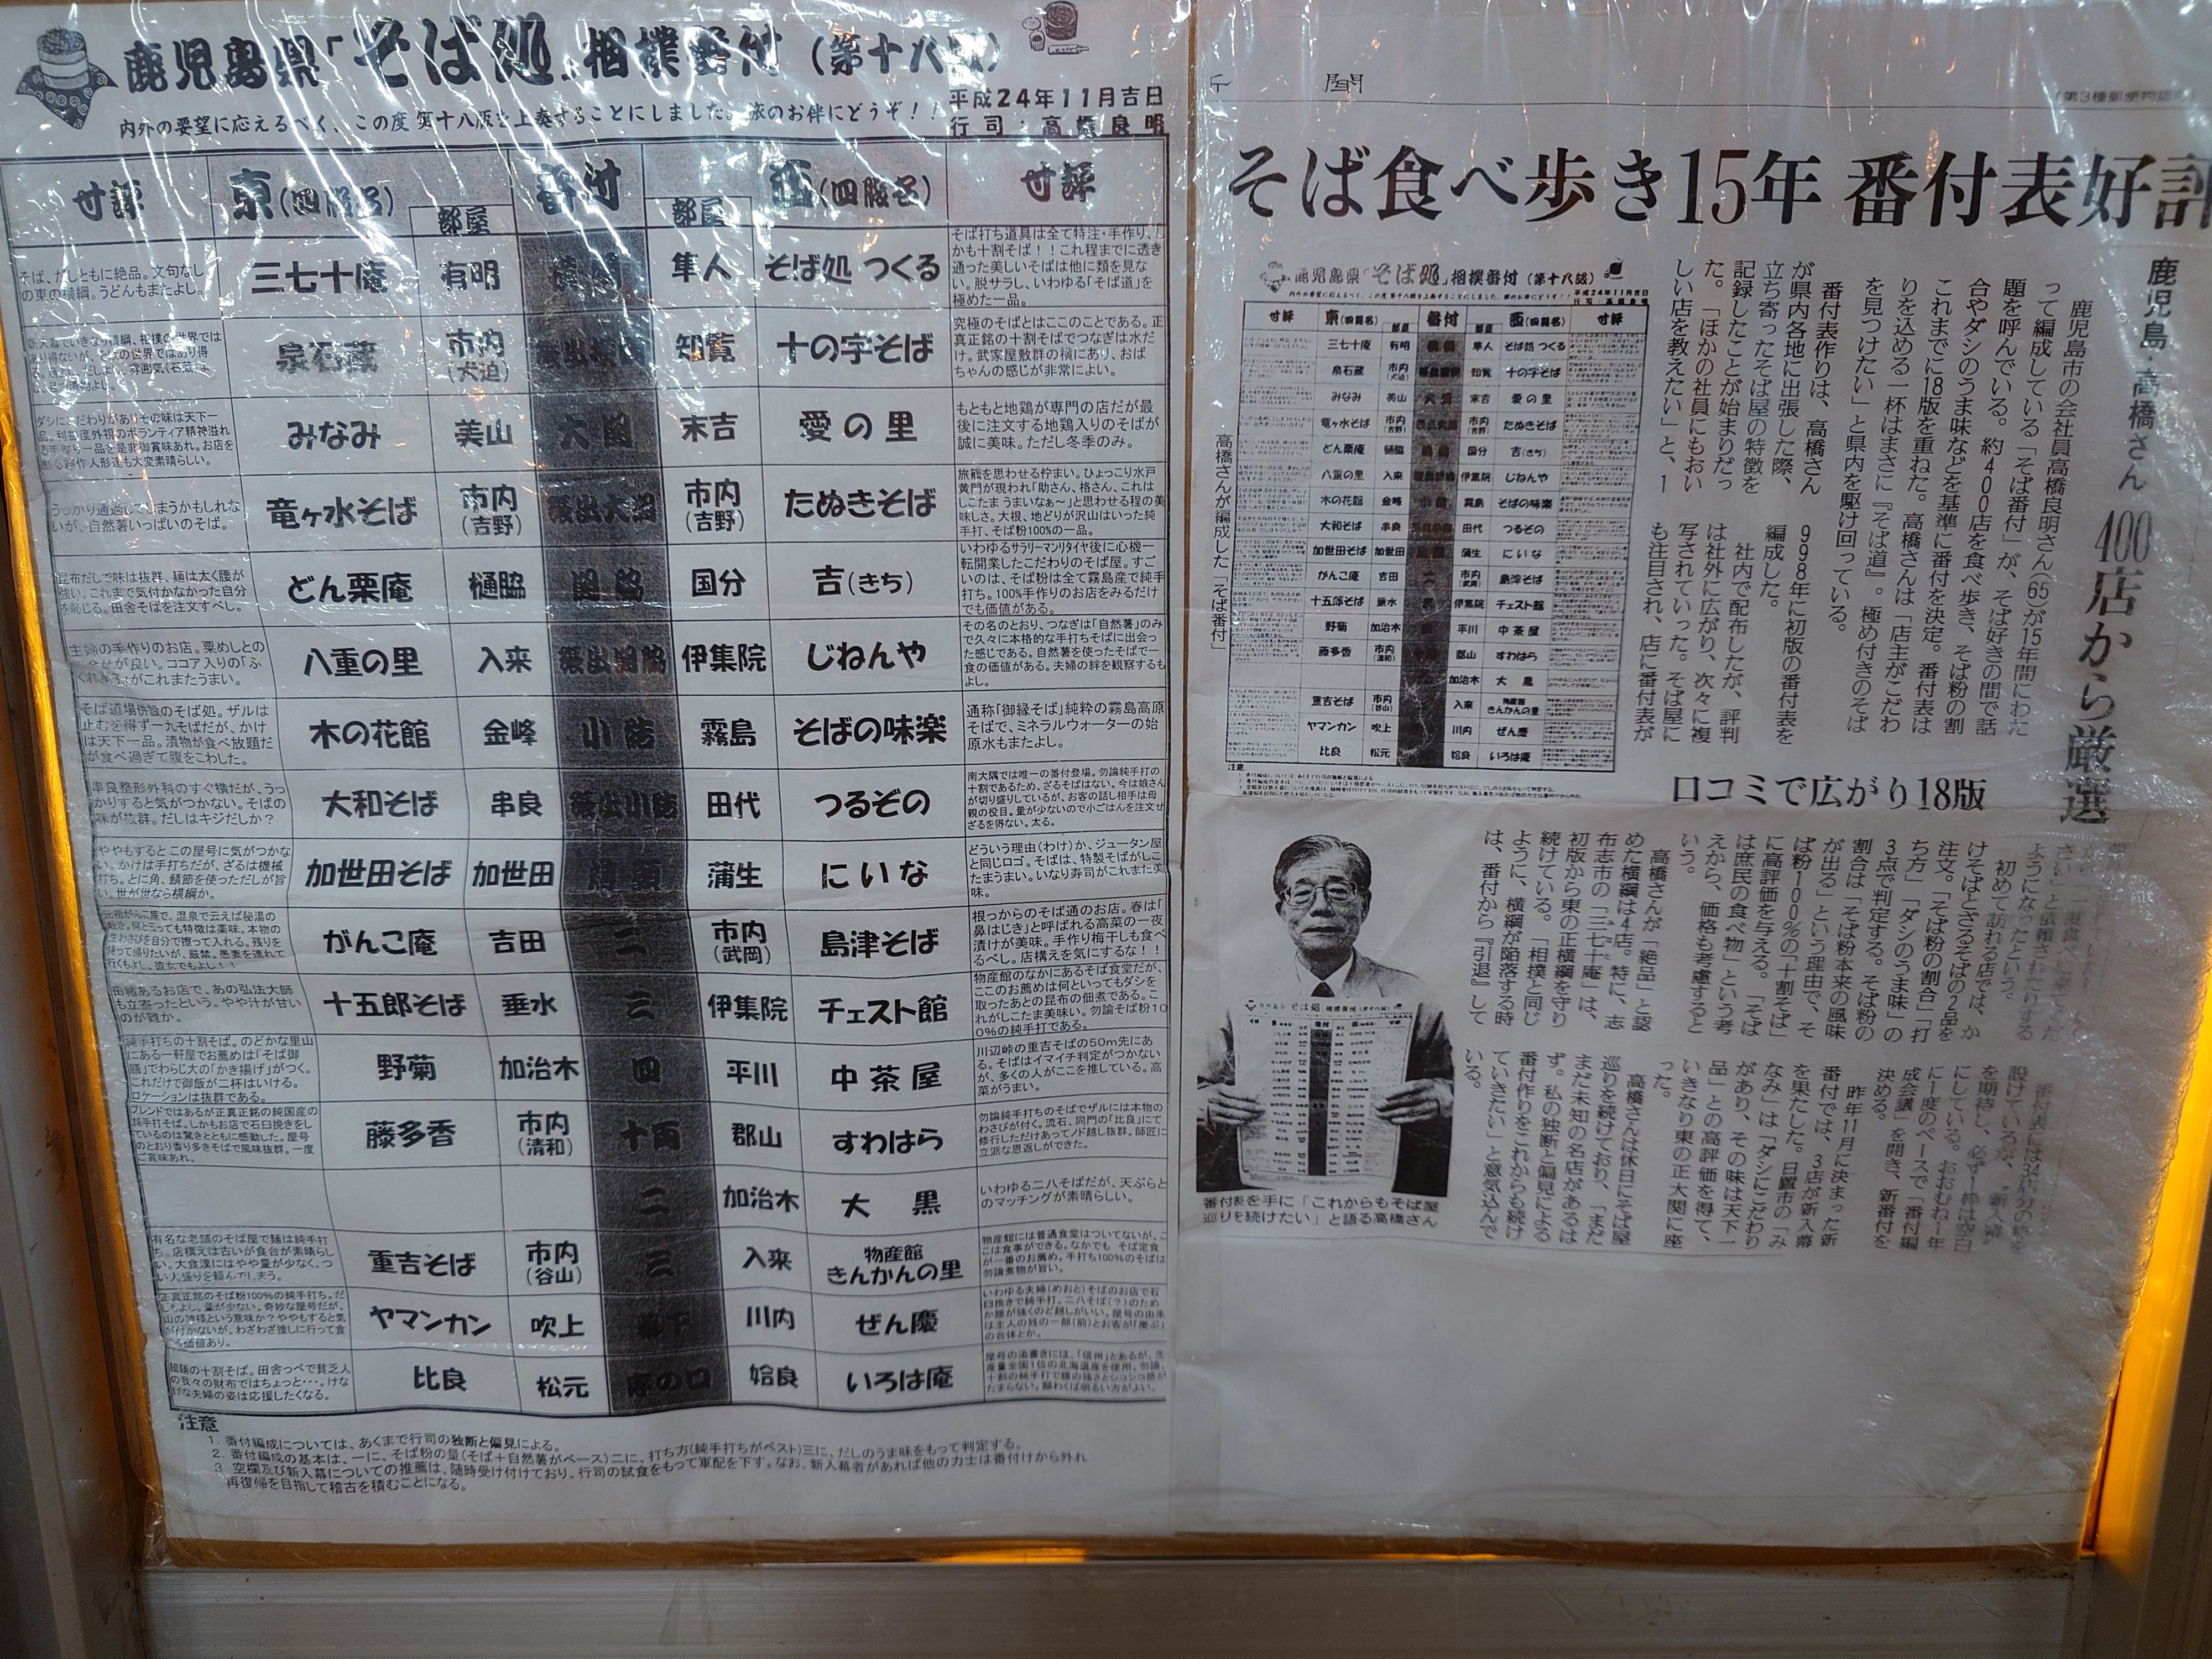 鹿児島県「そば処」相撲番付（第十八版）
平成24年11月吉日
内外の要望に応えるべく、この度 第十八版を上奏することにしました。旅のお伴にどうぞ！！
行司：高橋良明
寸評 東(四股名) 部屋 番付 部屋 西(四股名) 寸評
そば、だしともに絶品。文句なし
の東の横綱。うどんもまたよし。
三七十庵 有明 横綱 隼人 そば処 つくる
そば打ち道具は全て特注・手作り、し
かも十割そば！！これ程までに透き
通った美しいそばは他に類を見な
い。脱サラし、いわゆる「そば道」を
極めた一品。
泉石蔵 市内(犬迫) 張出横綱 知覧 十の字そば
究極のそばとはここのことである。正
真正銘の十割そばでつなぎは水だ
け。武家屋敷群の横にあり、おば
ちゃんの感じが非常によい。
みなみ 美山 大関 末吉 愛の里
もともと地鶏が専門の店だが最
後に注文する地鶏入りのそばが
誠に美味。ただし冬季のみ。
うっかり通過してしまうかもしれな
いが、自然薯いっぱいのそば。
竜ヶ水そば 市内(吉野) 張出大関 市内(吉野) たぬきそば
旅籠を思わせる佇まい。ひょっこり水戸
黄門が現われ「助さん、格さん、これは
しこたま うまいなぁ～」と思わせる程の美
味しさ。大根、地どりが沢山はいった純
手打、そば粉100%の一品。
昆布だしで味は抜群、麺は太く腰が
強い。これまで気付かなかった自分
を恥じる。田舎そばを注文すべし。
どん栗庵 樋脇 関脇 国分 吉(きち)
いわゆるサラリーマンリタイヤ後に心機一
転開業したこだわりのそば屋。すご
いのは、そば粉は全て霧島産で純手
打ち。100%手作りのお店をみるだけ
でも価値がある。
主婦の手作りのお店。粟めしとの
八重の里 入来 張出関脇 伊集院 じねんや
その名のとおり、つなぎは「自然薯」のみ
で久々に本格的な手打ちそばに出会っ
た感じである。自然薯を使ったそばで一
食の価値がある。夫婦の絆を観察するも
よし。
そば道場併設のそば処。ザルは
止むを得ず一九そばだが、かけ
は天下一品。漬物が食べ放題だ
が食べ過ぎて腹をこわした。
木の花館 金峰 小結 霧島 そばの味楽
通称「御縁そば」純粋の霧島高原
そばで、ミネラルウォーターの始
原水もまたよし。
串良整形外科のすぐ横だが、うっ
かりすると気がつかない。そばの
味が抜群。だしはキジだしか？
大和そば 串良 張出小結 田代 つるぞの
南大隅では唯一の番付登場。勿論純手打の
十割であるため、ざるそばはない。今は娘さん
が切り盛りしているが、お客の話し相手は母
親の役目。量が少ないので小ごはんを注文せ
ざるを得ない。太る。
ややもするとこの屋号に気がつかな
い。かけは手打ちだが、ざるは機械
打ち。とに角、鯖節を使っただしが旨
い。世が世なら横綱か。
加世田そば 加世田 前頭 蒲生 にいな
どういう理由(わけ)か、ジュータン屋
と同じロゴ。そばは、特製そばがしこ
たまうまい。いなり寿司がこれまた美
味。
がんこ庵 吉田 二 市内(武岡) 島津そば
根っからのそば通のお店。春は「
鼻はじき」と呼ばれる高菜の一夜
漬けが美味。手作り梅干しも食べ
るべし。店構えを気にするな！！
由緒あるお店で、あの弘法大師
も立寄ったという。やや汁が甘い
のが難か。
十五郎そば 垂水 三 伊集院 チェスト館
物産館のなかにあるそば食堂だが、
ここのお薦めは何といってもダシを
取ったあとの昆布の佃煮である。こ
れがしこたま美味い。勿論そば粉10
0%の純手打である。
純手打ちの十割そば。のどかな里山
にある一軒屋でお薦めは「そば御
膳」でわらじ大の「かき揚げ」がつく。
これだけで御飯が二杯はいける。
ロケーションは抜群である。
野菊 加治木 四 平川 中茶屋
川辺峠の重吉そばの50m先にあ
る。そばはイマイチ判定がつかない
が、多くの人がここを推している。高
菜がうまい。
ブレンドではあるが正真正銘の純国産の
純手打そば。しかもお店で石臼挽きをし
ているのは驚きとともに感動した。屋号
のとおり香り多きそばで風味抜群。一度
ご賞味あれ。
藤多香 市内(清和) 十両 郡山 すわはら
勿論純手打ちのそばでザルには本物の
わさびが付く。流石、同門の「比良」にて
修行しただけあってノド越し抜群。師匠に
立派な恩返しができた。
二 加治木 大黒
いわゆる二八そばだが、天ぷらと
のマッチングが素晴らしい。
有名な老舗のそば屋で麺は純手打
ち。店構えは古いが食台が素晴らし
い。大食漢にはやや量が少なく、つ
い大盛りを頼んでしまう。
重吉そば 市内(谷山) 三 入来 物産館 きんかんの里
物産館には普通食堂はついてないが、こ
こは食事ができる。なかでも そば定食
が一番のお薦め。手打ち100%のそばは
勿論煮物が旨い。
正真正銘のそば粉100%の純手打ち。だ
しもよし、量が少ない。奇妙な屋号だが、
山の神様という意味か？ややもすると気
が付かないが、わざわざ探しに行って食
べる価値あり。
ヤマンカン 吹上 幕下 川内 ぜん慶
いわゆる夫婦(めおと)そばのお店で石
臼挽きで純手打。二八そば(？)のため
か腰が強くのど越しがいい。屋号の由来
は主人の姓の一部(前)とお客が「慶ぶ」
の合体とか。
細麺の十割そば。田舎っぺで貧乏人
の我々の財布ではちょっと・・・。けな
げな夫婦の姿は応援したくなる。
比良 松元 序の口 姶良 いろは庵
屋号の添書きには、「信州」とあるが、生
産量全国1位の北海道産を使用。勿論、
十割の純手打で麺の強さとシコシコ感が
たまらない。願わくば明るい方がよい。
注意
1. 番付編成については、あくまで行司の独断と偏見による。
2. 番付編成の基本は、一に、そば粉の量(そば＋自然薯がベース)二に、打ち方(純手打ちがベスト)三に、だしのうま味をもって判定する。
3. 空欄及び新入幕についての推薦は、随時受け付けており、行司の試食をもって軍配を下す。なお、新入幕者があれば他の力士は番付けから外れ
再復帰を目指して稽古を積むことになる。
聞
(第3種郵便物認
そば食べ歩き15年 番付表好評
鹿児島・高橋さん 400店から厳選
鹿児島市の会社員高橋良明さん(65)が15年間にわた
って編成している「そば番付」が、そば好きの間で話
題を呼んでいる。約400店を食べ歩き、そば粉の割
合やダシのうま味などを基準に番付を決定。番付表は
これまでに18版を重ねた。高橋さんは「店主がこだわ
りを込める一杯はまさに『そば道』。極め付きのそば
を見つけたい」と県内を駆け回っている。
番付表作りは、高橋さん
が県内各地に出張した際、
立ち寄ったそば屋の特徴を
記録したことが始まりだっ
た。「ほかの社員にもおい
しい店を教えたい」と、1
998年に初版の番付表を
編成した。
社内で配布したが、評判
は社外に広がり、次々に複
写されていった。そば屋に
も注目され、店に番付表が
高橋さんが編成した「そば番付」
口コミで広がり18版
ようになったという。
初めて訪れる店では、か
けそばとざるそばの2品を
注文。「そば粉の割合」「打
ち方」「ダシのうま味」の
3点で判定する。そば粉の
割合は「そば粉本来の風味
が出る」という理由で、そ
ば粉100%の「十割そば」
に高評価を与える。「そば
は庶民の食べ物」という考
えから、価格も考慮すると
いう。
高橋さんが「絶品」と認
めた横綱は4店。特に、志
布志市の「三七十庵」は、
初版から東の正横綱を守り
続けている。「相撲と同じ
ように、横綱が陥落する時
は、番付から『引退』して
設けているが、“新入幕”
を期待し、必ず1枠は空白
にしている。おおむね1年
に1度のペースで「番付編
成会議」を開き、新番付を
決める。
昨年11月に決まった新
番付では、3店が新入幕
を果たした。日置市の「み
なみ」は「ダシにこだわり
があり、その味は天下一
品」との高評価を得て、
いきなり東の正大関に座
った。
高橋さんは休日にそば屋
巡りを続けており、「まだ
まだ未知の名店があるは
ず。私の独断と偏見による
番付作りをこれからも続け
ていきたい」と意気込んで
いる。
番付表を手に「これからもそば屋
巡りを続けたい」と語る高橋さん